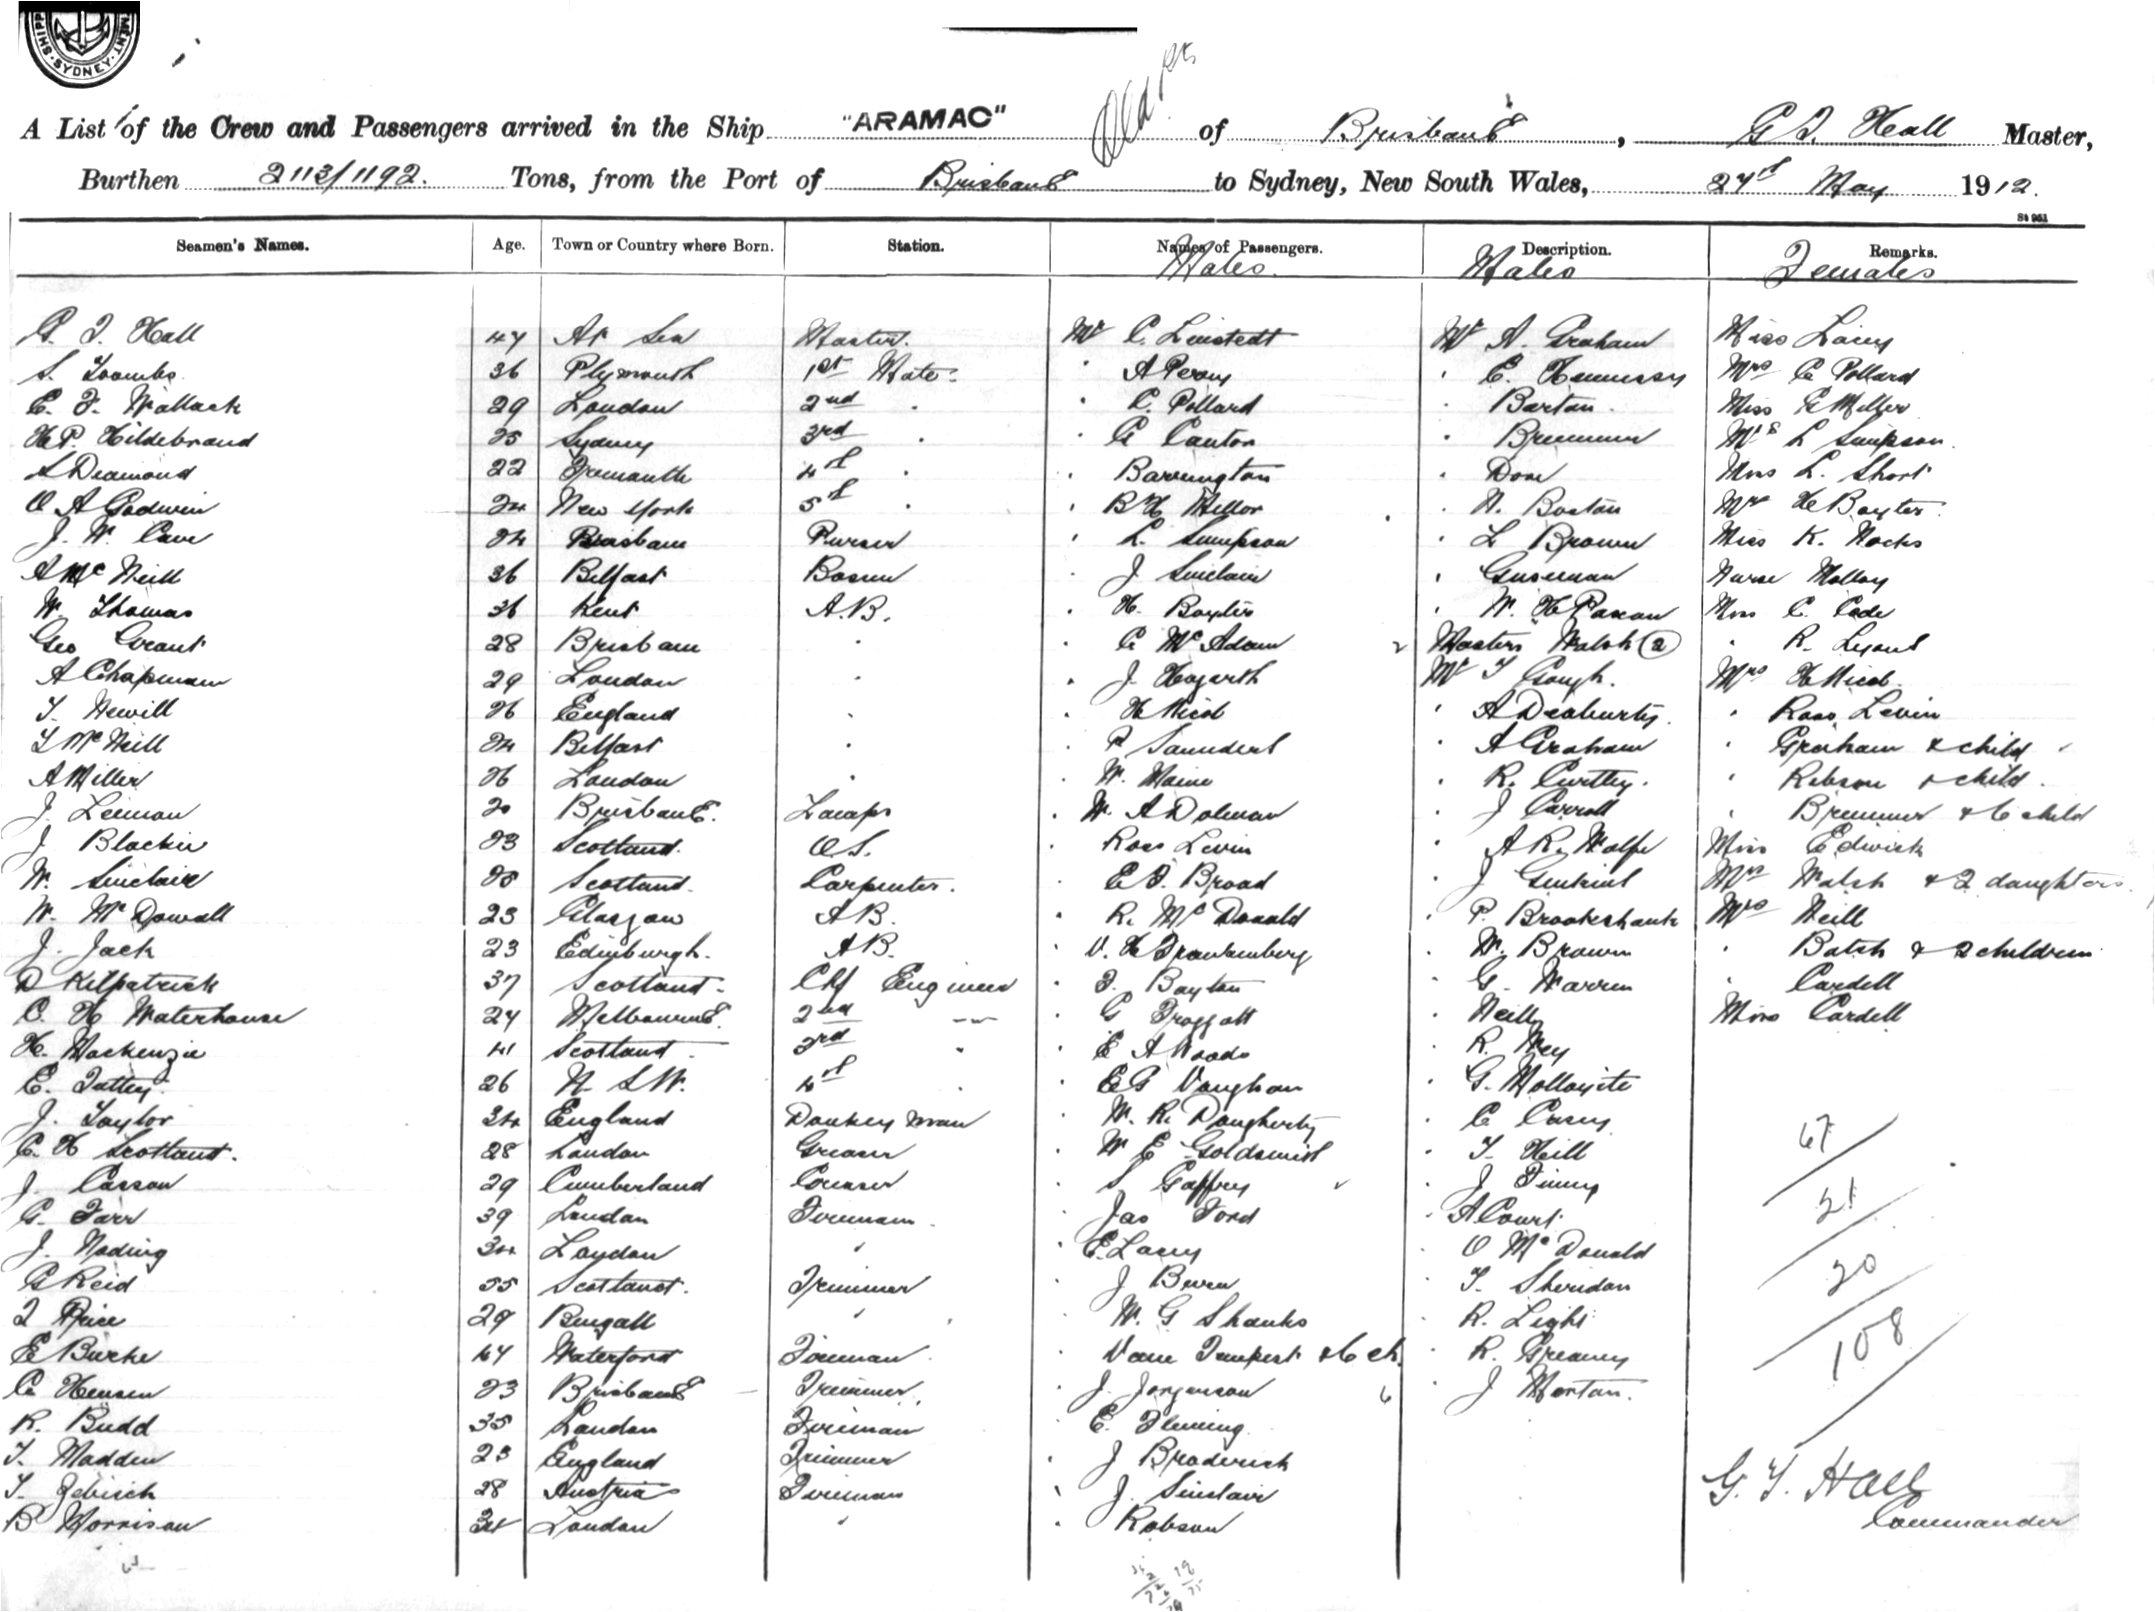 SYDNEY
A List of the Crew and Passengers arrived in the Ship "ARAMAC" of Brisbane, G T Hall Master,
Burthen 2113/1192. Tons, from the Port of Brisbane to Sydney, New South Wales, May 1912.
St 951
Seamen's Names. Age. Town or Country where Born. Station. Names of Passengers. Description. Remarks.
Males Males Females
G. T. Hall 47 At Sea Master. Mr C. Linstedt Mr A. Graham Miss Lacey
S. Toombs 36 Plymouth 1st Mate A Percy E. Hennessy Mrs C Pollard
E. F. Wallack 29 London 2nd C. Pollard Barton Miss E Miller
H P. Hildebrand 25 Sydney 3rd C Cantor Bremmer Mrs L Simpson
S Diamond 22 4th Barrington Dow Miss L. Short
O A Godwin 24 New York 5th B H Mellor N. Boston Mrs H Baxter
J. W. Cave 24 Brisbane Purser L. Simpson L Brown Miss K. Nocks
A McNeill 36 Belfast Bosun J Sinclair Nurse Molloy
W. Thomas 36 Kent A.B. H. Baxter W. H Paxon Miss C. Cade
Geo Grant 28 Brisbane C McAdam Masters Walsh (2) R. Lyons
A Chapman 29 London J. Hogarth Mr T Gough. Mrs H Nicol
T. Newill 26 England H Nicol A Ross Levin
T McNeill 24 Belfast P Saunders A Graham Graham & child
A Miller 26 London W. Maine R. Robson & child
J. Leeman 20 Brisbane. Lamps W. A Dolman J Carroll Bremmer & 6 child
J Blackie 23 Scotland. O.S. Ross Levin A R. Wolfe Miss Edwick
W. Sinclair 25 Scotland. Carpenter. E. F. Broad J Jenkins Mrs Walsh & 2 daughters
W. McDowall 23 Glasgow A B. R. McDonald P. Brookshank Mrs Neill
J. Jack 23 Edinburgh. A B. V. H Frankenberg W. Brown Batch & 2 children
D Kilpatrick 37 Scotland. Chf Engineer F. Bayton G. Warren Cardell
C. H Waterhouse 27 Melbourne 2nd G Froggatt Neill Miss Cardell
H. Mackenzie 41 Scotland 3rd E A Woods R. Wey
E. Tuttey 26 N. S. W. 4th E G Vaughan G.
J. Taylor 34 England Donkey man W. R. Daugherty C Casey 67
C. H Scotland. 28 London Greaser W E Goldsmith T. Hill
J. Casson 29 Cumberland Greaser S Gaffney J Finny 21
G. Farr 39 London Fireman. Jas Ford A Court
J. Noding 34 London E. Lacey O McDonald
G Reid 25 Scotland. Trimmer J Beven T. Sheridan 20
T Price 29 Bengall W. G Shanks R. Light
E Burke 47 Waterford Fireman Vane Tempest & 6 ch. R. Greaney 108
C Hensen 23 Brisbane Trimmer J. Jorgenson J Morton.
R. Budd 35 London Fireman E. Fleming
T. Madden 23 England Trimmer J Broderick
T. Zebisch 28 Austria Fireman J. Sinclair G. T. Hall
B Morrison 34 London Robson Commander